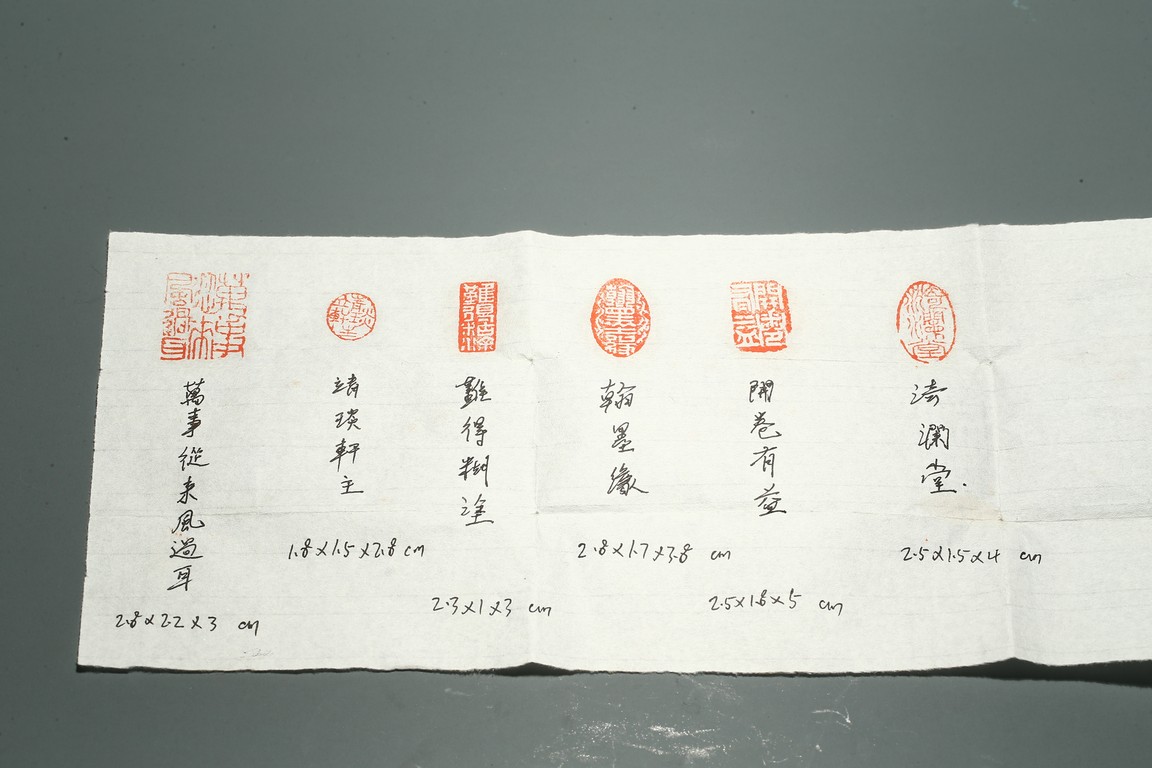 萬事從來風過耳
2.8×2.2×3 cm
靖琰軒主
1.8×1.5×2.8 cm
難得糊塗
2.3×1×3 cm
翰墨緣
2.8×1.7×3.8 cm
開卷有益
2.5×1.8×5 cm
濤瀾堂.
2.5×1.5×4 cm